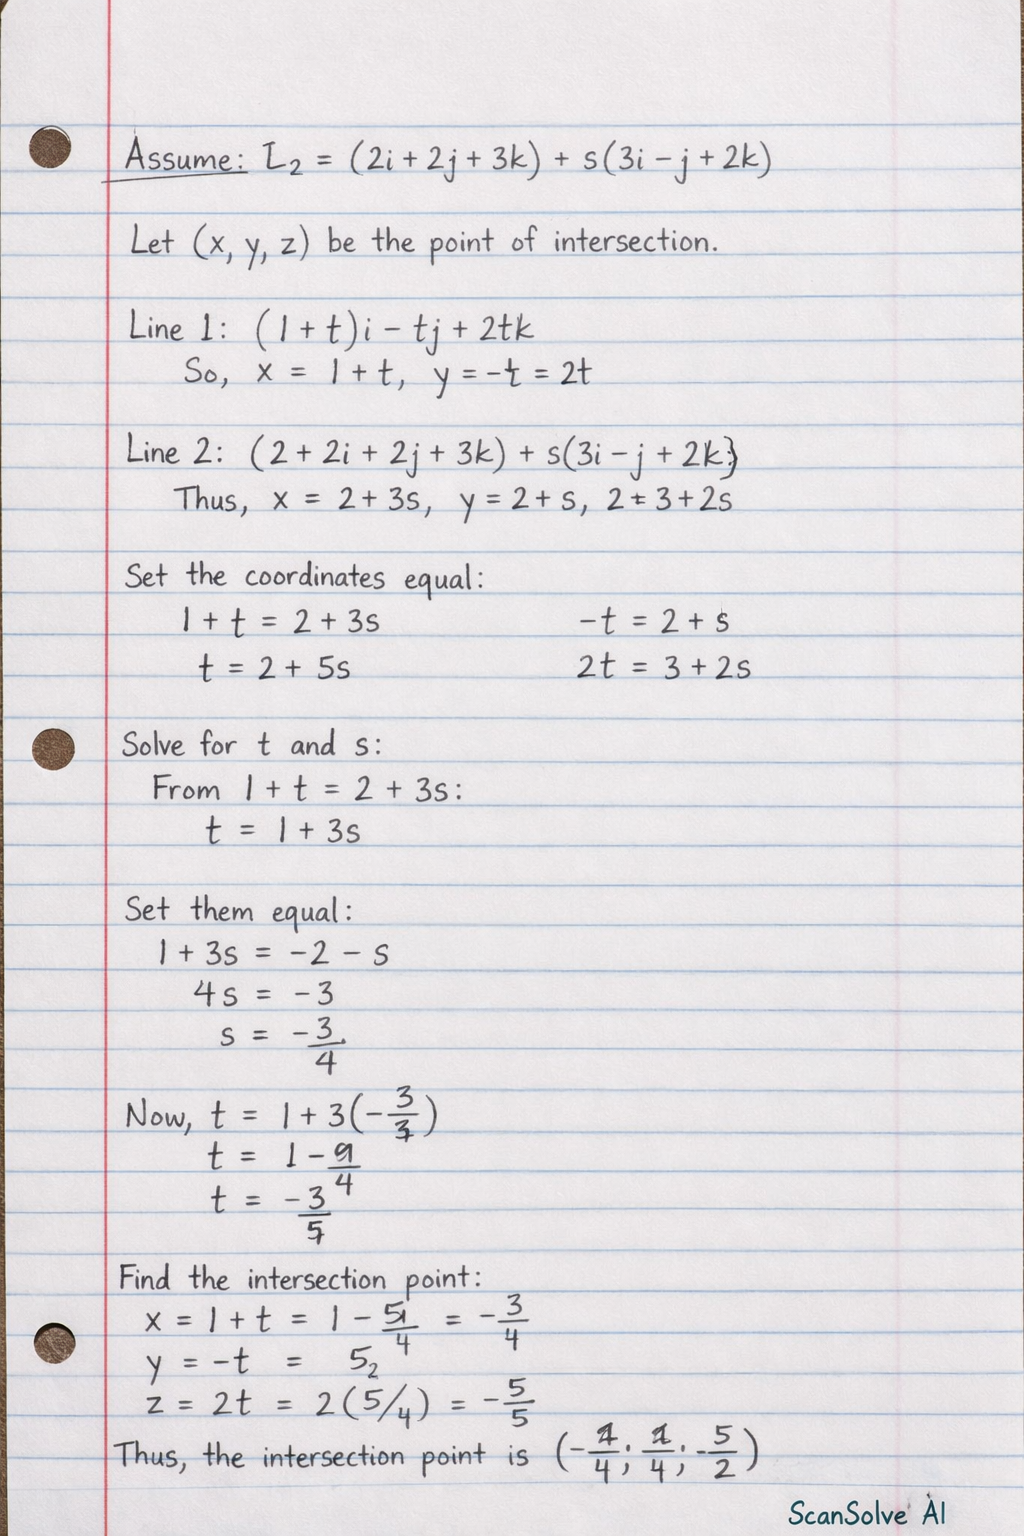 Assume: L₂ = (2i + 2j + 3k) + s(3i - j + 2k)
Let (x, y, z) be the point of intersection.
Line 1: (1 + t)i - tj + 2tk
So, x = 1 + t, y = -t = 2t
Line 2: (2 + 2i + 2j + 3k) + s(3i - j + 2k)
Thus, x = 2 + 3s, y = 2 + s, 2 = 3 + 2s
Set the coordinates equal:
1 + t = 2 + 3s -t = 2 + s
t = 2 + 5s 2t = 3 + 2s
Solve for t and s:
From 1 + t = 2 + 3s:
t = 1 + 3s
Set them equal:
1 + 3s = -2 - s
4s = -3
s = -3/4
Now, t = 1 + 3(-3/3)
t = 1 - 9/4
t = -3/5
Find the intersection point:
x = 1 + t = 1 - 5/4 = -3/4
y = -t = 5₂
z = 2t = 2(5/4) = -5/5
Thus, the intersection point is (- /4; /4; -5/2)
ScanSolve AI